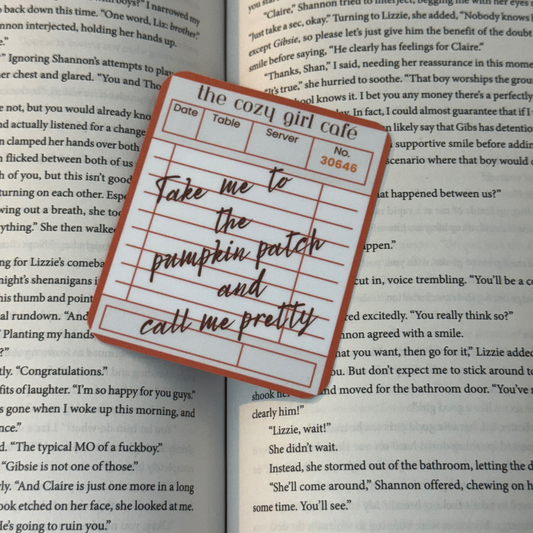 with boys?" I narrowed my
back down this time. "One word, Liz: brother."
nnon interjected, holding her hands up.
" Ignoring Shannon's attempts to play
er chest and glared. "You and Tho
e not, but you would already kno
nd actually listened for a change
n clamped her hands over both
n flicked between both of us
h of you, but this isn't good
turning on each other. Espe
wing out a breath, she too
ything." She then walked
ng for Lizzie's comeba
night's shenanigans i
his thumb and point
al rundown. "And
Planting my hands
?"
tly. "Congratulations."
fits of laughter. "I'm so happy for you guys."
s gone when I woke up this morning, and
nce."
d. "The typical MO of a fuckboy."
"Gibsie is not one of those."
ly. "And Claire is just one more in a long
ook etched on her face, she looked at me.
He's going to ruin you."
the cozy girl café
Date Table Server No.
30646
Take me to
the
pumpkin patch
and
call me pretty
"Claire," Shannon tried to interject, begging me with her eyes
"Just take a sec, okay." Turning to Lizzie, she added, "Nobody knows
except Gibsie, so please let's just give him the benefit of the doubt
smile before saying, "He clearly has feelings for Claire."
"Thanks, Shan," I said, needing her reassurance in this mome
"It's true," she hurried to soothe. "That boy worships the grou
hool knows it. I bet you any money there's a perfectly
lay. In fact, I could almost guarantee that if I
n likely say that Gibs has detentio
supportive smile before addin
scenario where that boy would
at happened between us?"
ppen."
cut in, voice trembling. "You'll be a c
red excitedly. "You really think so?"
nnon agreed with a smile.
hat you want, then go for it," Lizzie added
ou. But don't expect me to stick around t
shook he nd moved for the bathroom door. "You've
clearly him!"
"Lizzie, wait!"
She didn't wait.
Instead, she stormed out of the bathroom, letting the d
"She'll come around," Shannon offered, chewing on h
some time. You'll see."